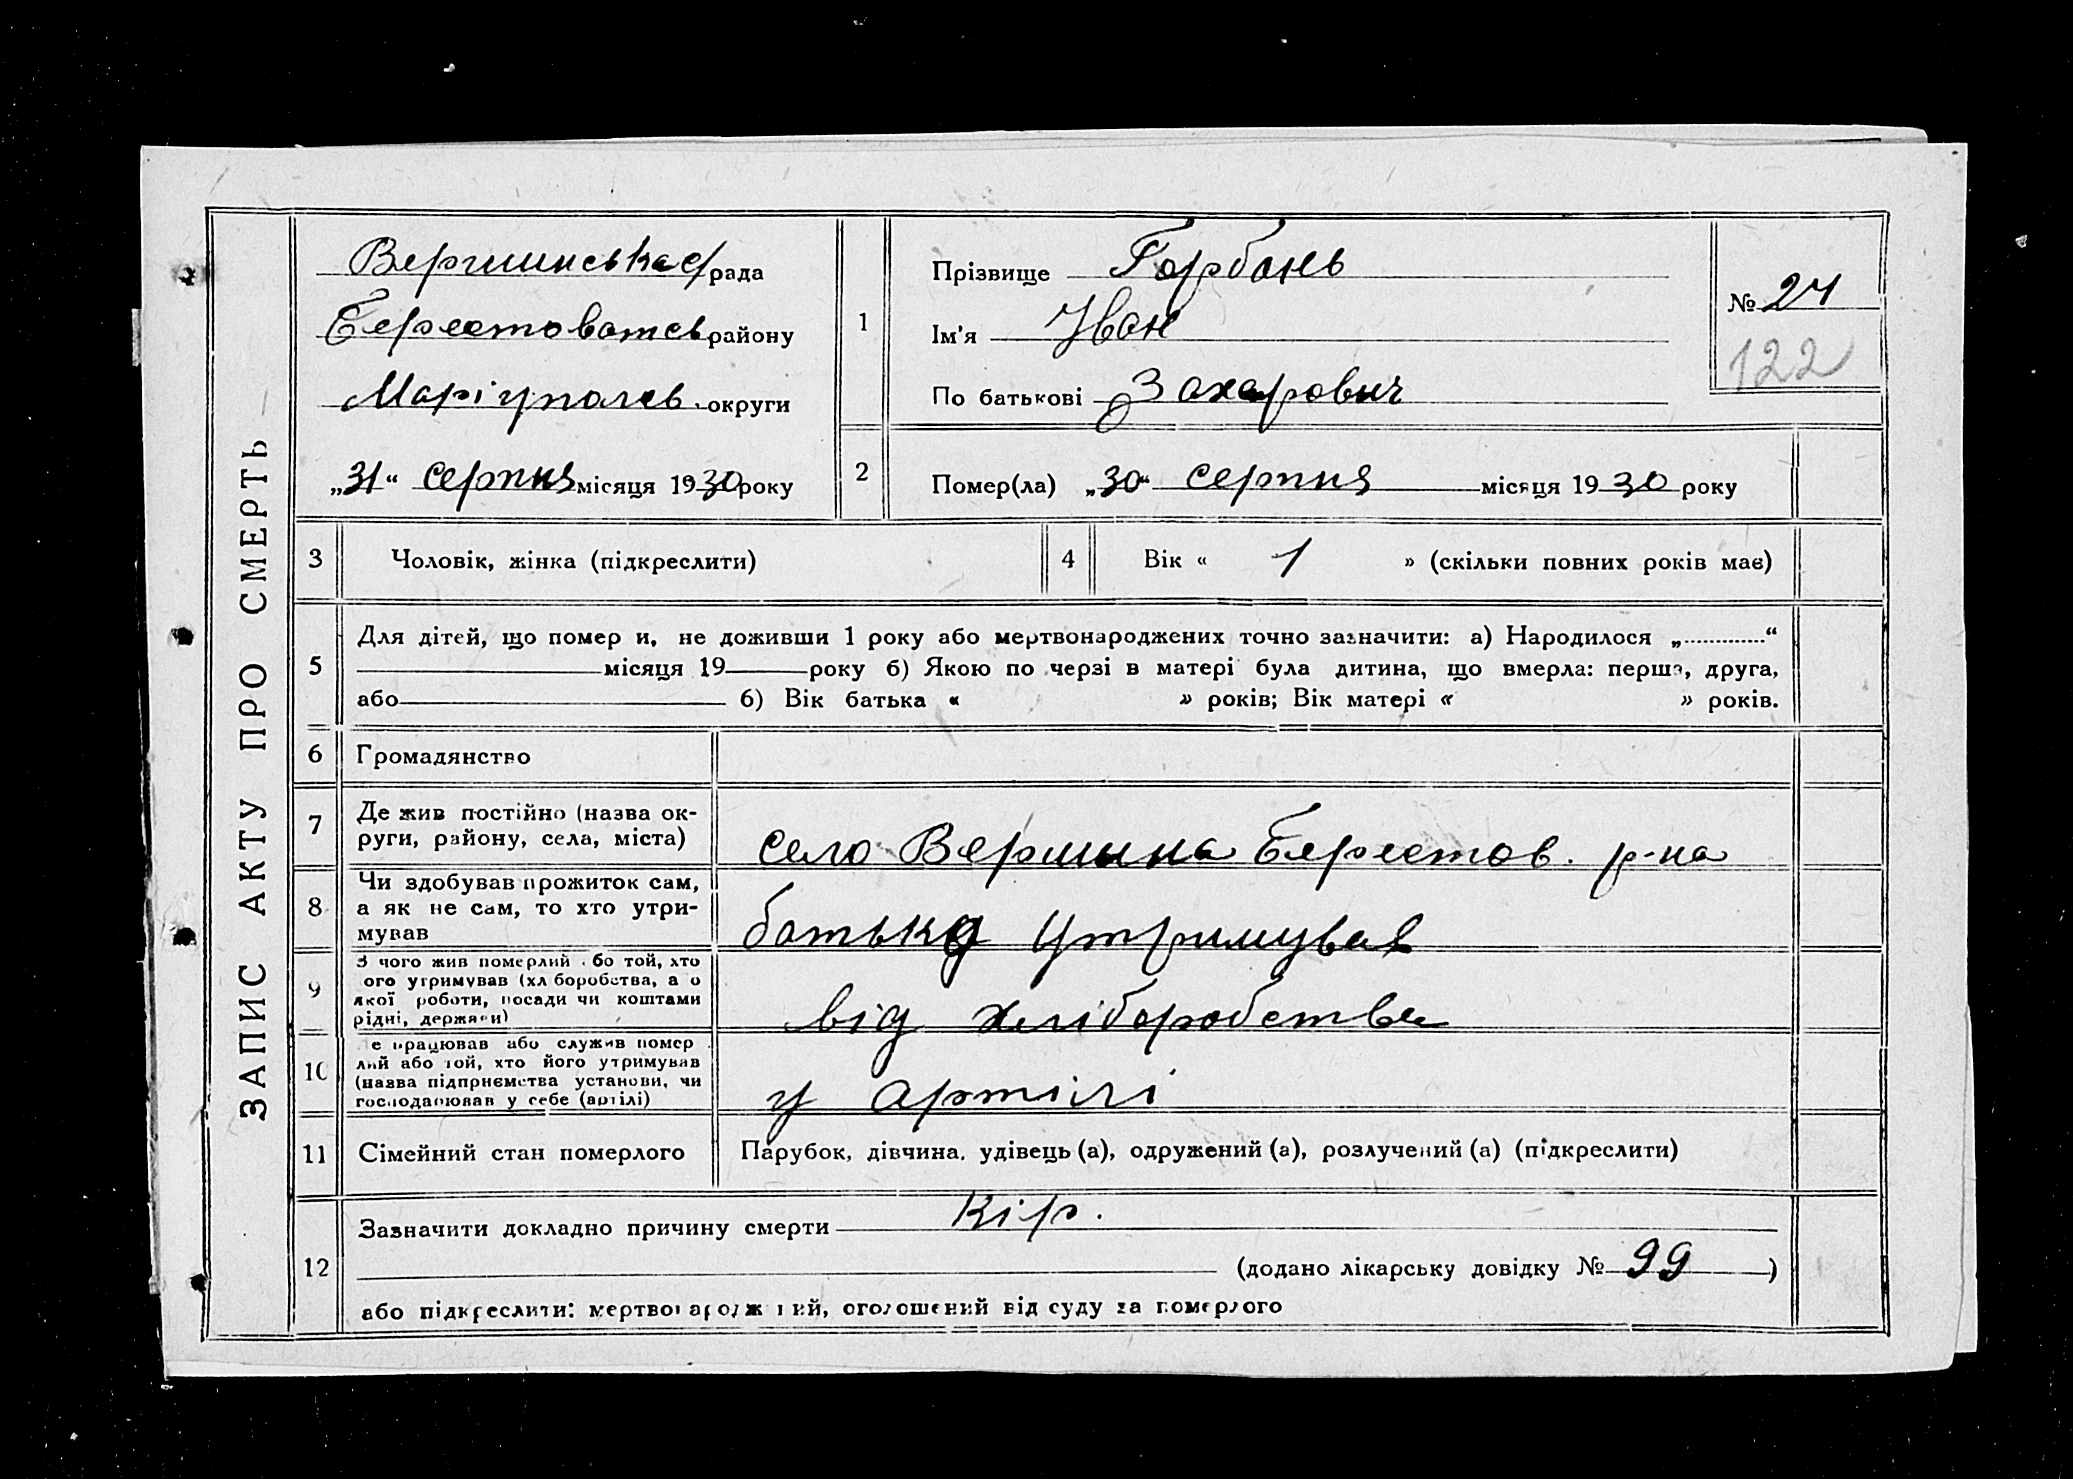 ЗАПИС АКТУ ПРО СМЕРТЬ
Вершинська с/рада
Берестоватськ району
Маріупольськ. округи
„31“ серпня місяця 1930 року
1
Прізвище Горбань
Ім'я Іван
По батькові Захарович
№ 24
122
2
Помер(ла) „30“ серпня місяця 1930 року
3 Чоловік, жінка (підкреслити)
4 Вік « 1 » (скільки повних років має)
5
Для дітей, що помер и, не доживши 1 року або мертвонароджених точно зазначити: а) Народилося „.............“
місяця 19 року б) Якою по черзі в матері була дитина, що вмерла: перша, друга,
або б) Вік батька « » років; Вік матері « » років.
6 Громадянство
7
Де жив постійно (назва ок-
руги, району, села, міста)
село Вершина Берестов. р-на
8
Чи здобував прожиток сам,
а як не сам, то хто утри-
мував
батько утримував
9
З чого жив померлий або той, хто
ого утримував (хл боробства, а о
якої роботи, посади чи коштами
рідні, держави)
від хліборобства
10
е працював або служив помер
лий або той, хто його утримував
(назва підприємства установи, чи
господарював у себе (артілі)
у артілі
11 Сімейний стан померлого
Парубок, дівчина, удівець (а), одружений (а), розлучений (а) (підкреслити)
12
Зазначити докладно причину смерти Кір.
(додано лікарську довідку № 99 )
або підкреслити: мертвонароджений, оголошений від суду за померлого